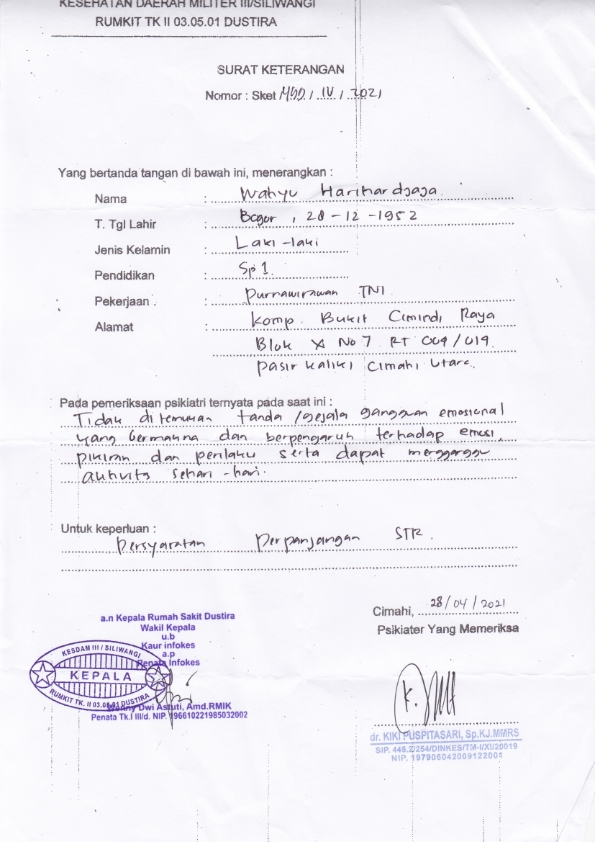 KESEHATAN DAERAH MILITER III/SILIWANGI
RUMKIT TK II 03.05.01 DUSTIRA
SURAT KETERANGAN
Nomor : Sket / IV / 2021
Yang bertanda tangan di bawah ini, menerangkan :
Nama : Wahyu Harihardjaja
T. Tgl Lahir : Bogor, 28-12-1952
Jenis Kelamin : Laki-laki
Pendidikan : Sp1
Pekerjaan : Purnawirawan TNI
Alamat : Komp. Bukit Cimindi Raya
Blok No 7 RT 004/019
Pasir kaliki Cimahi Utara
Pada pemeriksaan psikiatri ternyata pada saat ini :
Tidak ditemukan tanda/gejala gangguan emosional
yang bermakna dan berpengaruh terhadap emosi,
pikiran dan perilaku serta dapat mengganggu
aktivitas sehari-hari.
Untuk keperluan :
Persyaratan Perpanjangan STR.
Cimahi, 28/04/2021
Psikiater Yang Memeriksa
a.n Kepala Rumah Sakit Dustira
Wakil Kepala
u.b
Kaur infokes
a.p
Renata Infokes
KESDAM III / SILIWANGI
KEPALA
RUMKIT TK. II 03.05.01 DUSTIRA
Dwi Astuti, Amd.RMIK
Penata Tk.I III/d. NIP. 196610221985032002
dr. KIKI PUSPITASARI, Sp.KJ.MMRS
SIP. 446.2/254/DINKES/TM-I/XI/20019
NIP. 197906042009122001